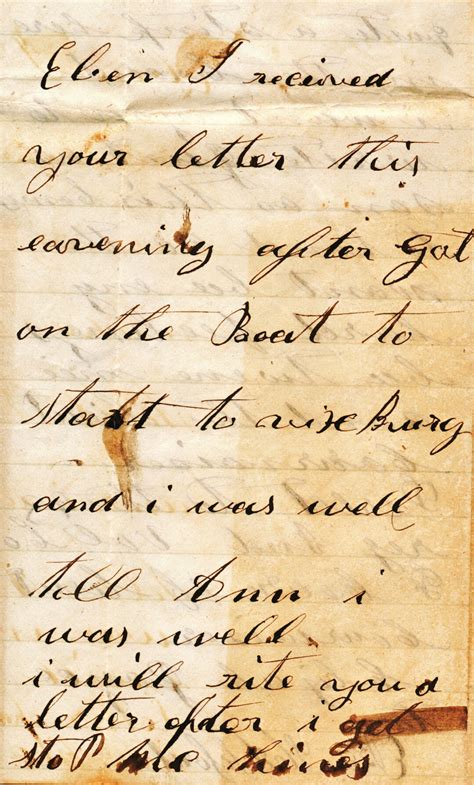 Eben I recived
your letter this
eavening after Got
on the Boat to
start to vixBurg
and i was well
tell Ann i
was well
i will rite you a
letter after i get